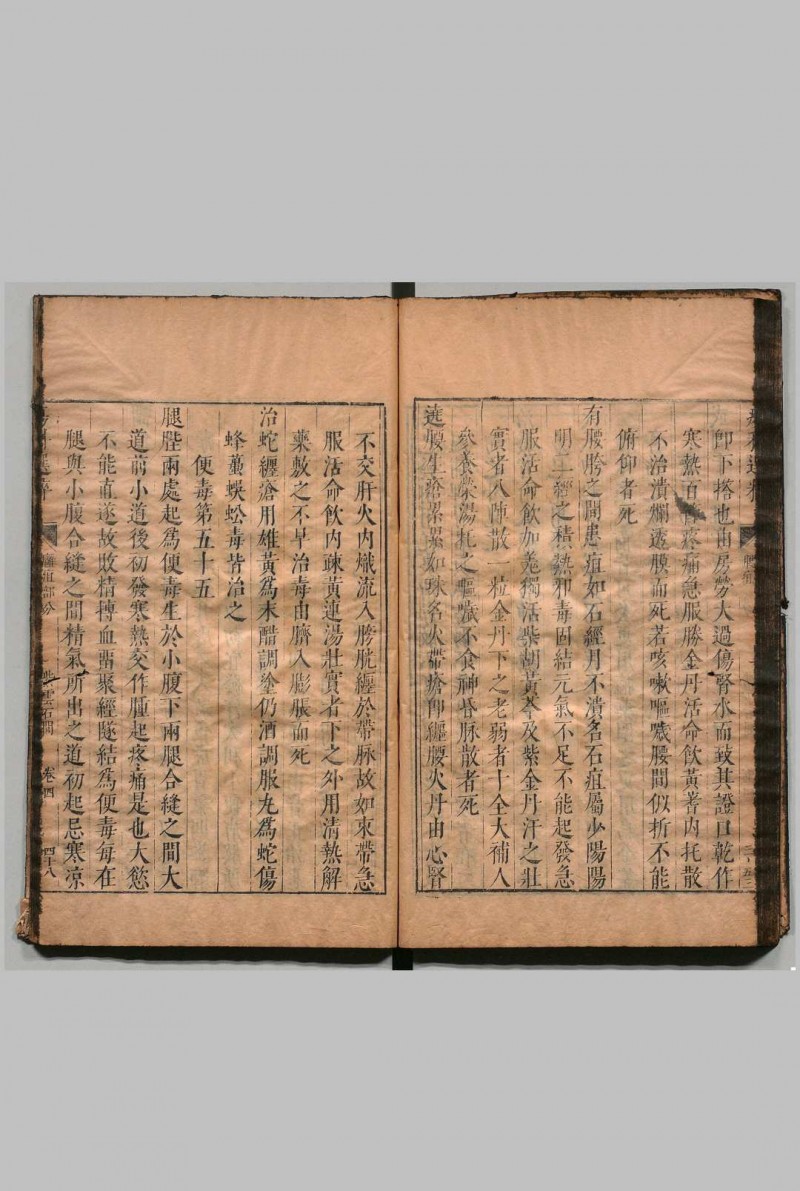 卽下搭也由房勞大過傷腎水而致其證口乾作
寒熱百節疼痛急服勝金丹活命飲黃耆内托散
不治潰爛透膜而死若咳嗽嘔噦腰間似折不能
俯仰者死
有腰胯之間患疽如石經月不潰名石疽屬少陽陽
明二經之積熱邪毒固結元氣不足不能起發急
服活命飲加羌獨活柴胡黃芩及紫金丹汗之壯
實者八陣散一粒金丹下之老弱者十全大補人
參養榮湯托之嘔噦不食神昏脉散者死
遶腰生瘡累累如珠名火帶瘡卽纏腰火丹由心腎
不交肝火内熾流入膀胱纏於帶脉故如束帶急
服活命飲内疎黃連湯壯實者下之外用清熱解
藥敷之不早治毒由臍入膨脹而死
治蛇纏瘡用雄黃爲末醋調塗仍酒調服凡爲蛇傷
蜂蠆蜈蚣毒皆治之
便毒第五十五
腿胜兩處起爲便毒生於小腹下兩腿合縫之間大
道前小道後初發寒熱交作腫起疼痛是也大慾
不能直遂故敗精搏血畱聚經隧結爲便毒每在
腿與小腹合縫之間精氣所出之道初起忌寒涼
癰疽部分
卷四
四十八